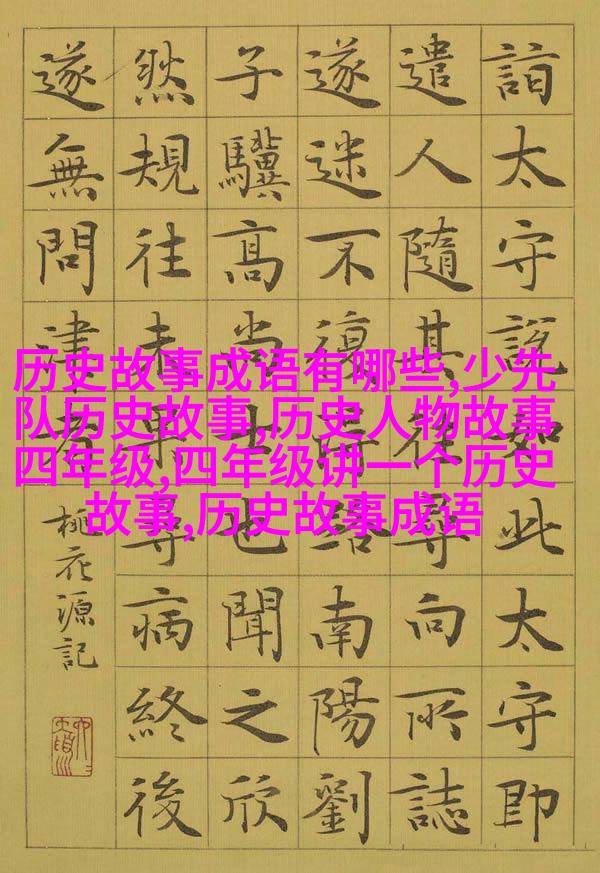 詣太守說如此太守即
遣人隨其往尋向所誌
遂迷不復得路南陽劉
子驥高尚士也聞之欣
然規往未果尋病終後
遂無問津者
桃花源記
历史故事成语有哪些,少先
队历史故事,历史人物故事
四年级,四年级讲一个历史
故事,历史故事成语